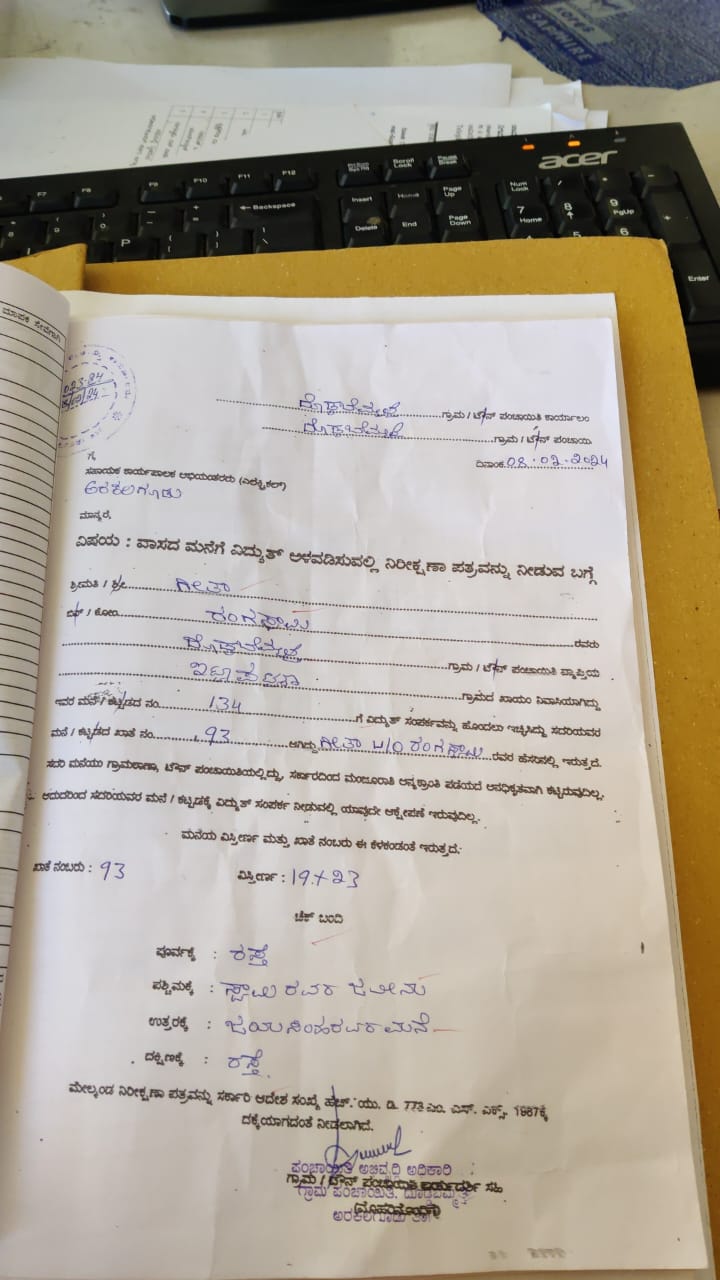 acer
SAPPHIRE
F7 F8 F9 F10 F11 F12
Scroll Lock
Pause Break
Insert Home Page Up
Num Lock
← Backspace
Delete End Page Down
7 Home 8 9 PgUp
P
5 6
Enter
ಮಾಪಕ ಸೇವೆಗಾಗಿ
ದೊಡ್ಡಬೆಮ್ಮತ್ತಿ ಗ್ರಾಮ / ಟೌನ್ ಪಂಚಾಯಿತಿ ಕಾರ್ಯಾಲಂ
ದೊಡ್ಡಬೆಮ್ಮತ್ತಿ ಗ್ರಾಮ / ಟೌನ್ ಪಂಚಾಯ
ದಿನಾಂಕ 08.02.2024
ಗೆ,
ಸಹಾಯಕ ಕಾರ್ಯಪಾಲಕ ಅಭಿಯಂತರರು (ಎಲೆಕ್ಟ್ರಿಕಲ್)
ಅರಕಲಗೂಡು
ಮಾನ್ಯರೆ,
ವಿಷಯ : ವಾಸದ ಮನೆಗೆ ವಿದ್ಯುತ್ ಅಳವಡಿಸುವಲ್ಲಿ ನಿರೀಕ್ಷಣಾ ಪತ್ರವನ್ನು ನೀಡುವ ಬಗ್ಗೆ
ಶ್ರೀಮತಿ / ಶ್ರೀ ಗೀತಾ
ಬಿನ್ / ಕೋಂ ರಂಗಸ್ವಾಮಿ ರವರು
ದೊಡ್ಡಬೆಮ್ಮತ್ತಿ ಗ್ರಾಮ / ಟೌನ್ ಪಂಚಾಯಿತಿ ವ್ಯಾಪ್ತಿಯ
ಗ್ರಾಮದ ಖಾಯಂ ನಿವಾಸಿಯಾಗಿದ್ದು
ಇವರ ಮನೆ / ಕಟ್ಟಡದ ನಂ 134 ಗೆ ವಿದ್ಯುತ್ ಸಂಪರ್ಕವನ್ನು ಹೊಂದಲು ಇಚ್ಛಿಸಿದ್ದು ಸದರಿಯವರ
ಮನೆ / ಕಟ್ಟಡದ ಖಾತೆ ನಂ 93 ಆಗಿದ್ದು ಗೀತಾ W/O ರಂಗಸ್ವಾಮಿ ರವರ ಹೆಸರಿನಲ್ಲಿ ಇರುತ್ತದೆ.
ಸದರಿ ಮನೆಯು ಗ್ರಾಮಠಾಣಾ, ಟೌನ್ ಪಂಚಾಯಿತಿಯಲ್ಲಿದ್ದು, ಸರ್ಕಾರದಿಂದ ಮಂಜೂರಾತಿ ಅನ್ಯಕ್ರಾಂತಿ ಪಡೆಯದೆ ಅನಧಿಕೃತವಾಗಿ ಕಟ್ಟಿರುವುದಿಲ್ಲ.
ಆದುದರಿಂದ ಸದರಿಯವರ ಮನೆ / ಕಟ್ಟಡಕ್ಕೆ ವಿದ್ಯುತ್ ಸಂಪರ್ಕ ನೀಡುವಲ್ಲಿ ಯಾವುದೇ ಆಕ್ಷೇಪಣೆ ಇರುವುದಿಲ್ಲ.
ಮನೆಯ ವಿಸ್ತೀರ್ಣ ಮತ್ತು ಖಾತೆ ನಂಬರು ಈ ಕೆಳಕಂಡಂತೆ ಇರುತ್ತದೆ.
ಖಾತೆ ನಂಬರು : 93 ವಿಸ್ತೀರ್ಣ : 19+23
ಚೆಕ್ ಬಂದಿ
ಪೂರ್ವಕ್ಕೆ : ರಸ್ತೆ
ಪಶ್ಚಿಮಕ್ಕೆ : ಸ್ವಾಮಿ ರವರ ಜಮೀನು
ಉತ್ತರಕ್ಕೆ : ಜಯಸಿಂಹರವರ ಮನೆ
ದಕ್ಷಿಣಕ್ಕೆ : ರಸ್ತೆ
ಮೇಲ್ಕಂಡ ನಿರೀಕ್ಷಣಾ ಪತ್ರವನ್ನು ಸರ್ಕಾರಿ ಆದೇಶ ಸಂಖ್ಯೆ ಹೆಚ್. ಯು. ಡಿ. 773 ಎಂ. ಎಸ್. ಎಕ್ಸ್. 1987ಕ್ಕೆ
ದಕ್ಕೆಯಾಗದಂತೆ ನೀಡಲಾಗಿದೆ.
ಪಂಚಾಯಿತಿ ಅಭಿವೃದ್ಧಿ ಅಧಿಕಾರಿ
ಗ್ರಾಮ / ಟೌನ್ ಪಂಚಾಯಿತಿ ಕಾರ್ಯದರ್ಶಿ ಸಹಿ
ಗ್ರಾಮ ಪಂಚಾಯಿತಿ, ದೊಡ್ಡಬೆಮ್ಮತ್ತಿ
(ಮೊಹರಿನೊಂದಿಗೆ)
ಅರಕಲಗೂಡು ತಾ||